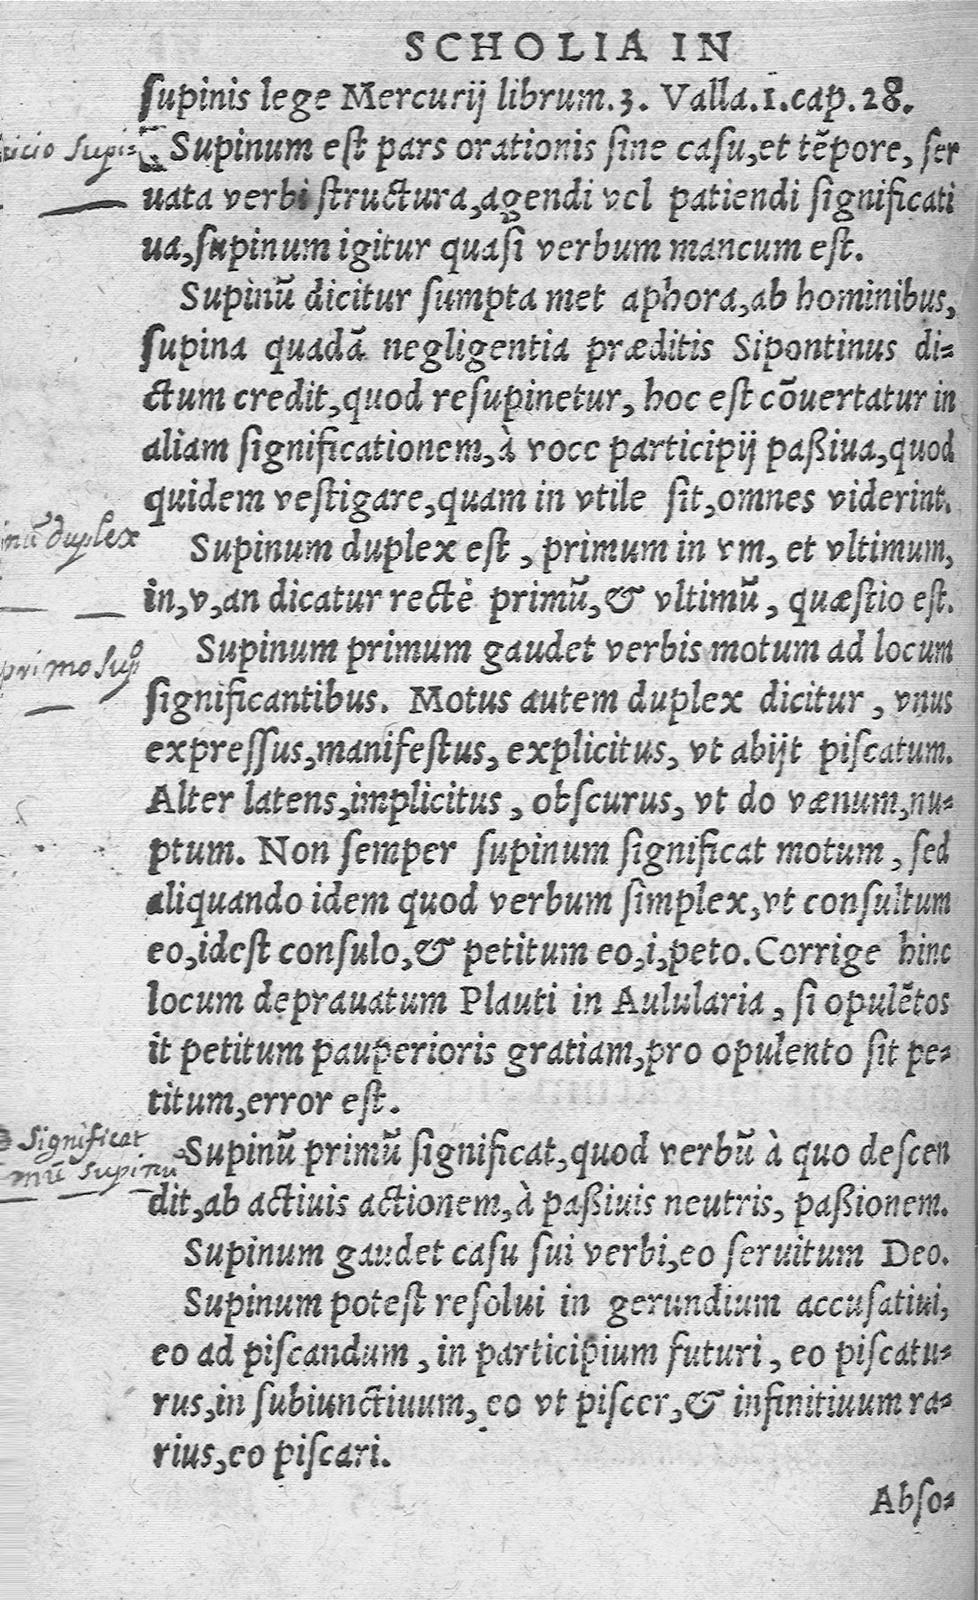 SCHOLIA IN
ſupinis lege Mercurij librum.3. Valla.1.cap.28.
Supinum eſt pars orationis ſine caſu,et tēpore, ſer
uata verbi ſtructura,agendi vel patiendi ſignificati
ua,ſupinum igitur quaſi verbum mancum eſt.
Supinū dicitur ſumpta met aphora,ab hominibus,
ſupina quadā negligentia præditis Sipontinus di=
ctum credit,quod reſupinetur, hoc eſt cōuertatur in
aliam ſignificationem,à voce participij paßiua,quod
quidem veſtigare,quam in vtile ſit,omnes viderint.
inū duplex
Supinum duplex est , primum in vm, et vltimum,
in,v,an dicatur rectè primū,& vltimū, quæſtio eſt.
primo Sup
Supinum primum gaudet verbis motum ad locum
ſignificantibus. Motus autem duplex dicitur , vnus
expreſſus,manifeſtus, explicitus, vt abijt piſcatum.
Alter latens,implicitus , obſcurus, vt do vænum,nu=
ptum. Non ſemper ſupinum ſignificat motum , ſed
aliquando idem quod verbum ſimplex,vt conſultum
eo,ideſt conſulo,& petitum eo,i,peto.Corrige hinc
locum deprauatum Plauti in Aulularia , ſi opulētos
it petitum pauperioris gratiam,pro opulento ſit pe=
titum,error eſt.
Significat
mū Supinu
Supinū primū ſignificat,quod verbū à quo deſcen
dit,ab actiuis actionem,à paßiuis neutris, paßionem.
Supinum gaudet caſu ſui verbi,eo ſeruitum Deo.
Supinum poteſt reſolui in gerundium accuſatiui,
eo ad piſcandum , in participium futuri , eo piſcatu=
rus,in ſubiunctiuum, eo vt piſcer,& infinitiuum ra=
rius,eo piſcari.
Abſo=